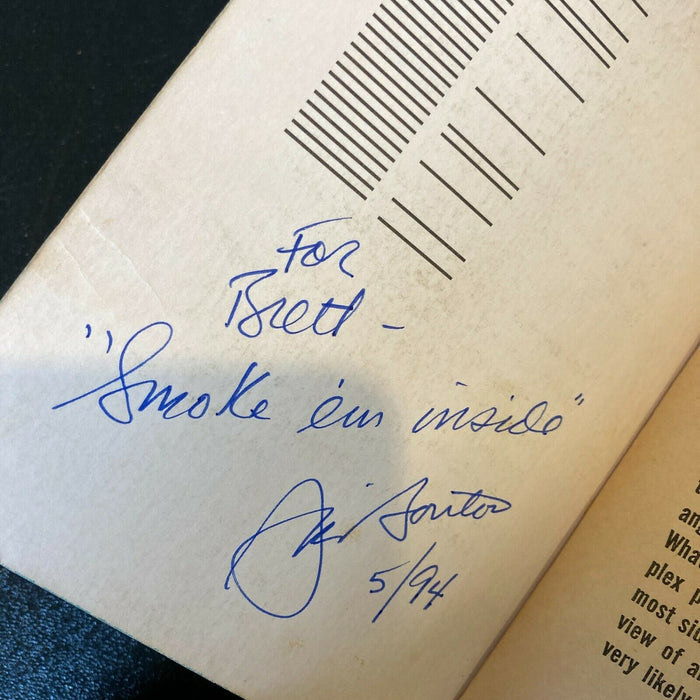 For
Brett -
"Smoke 'em inside"
Jim Bouton
5/94
ang
What
plex p
most sid
view of a
very likely